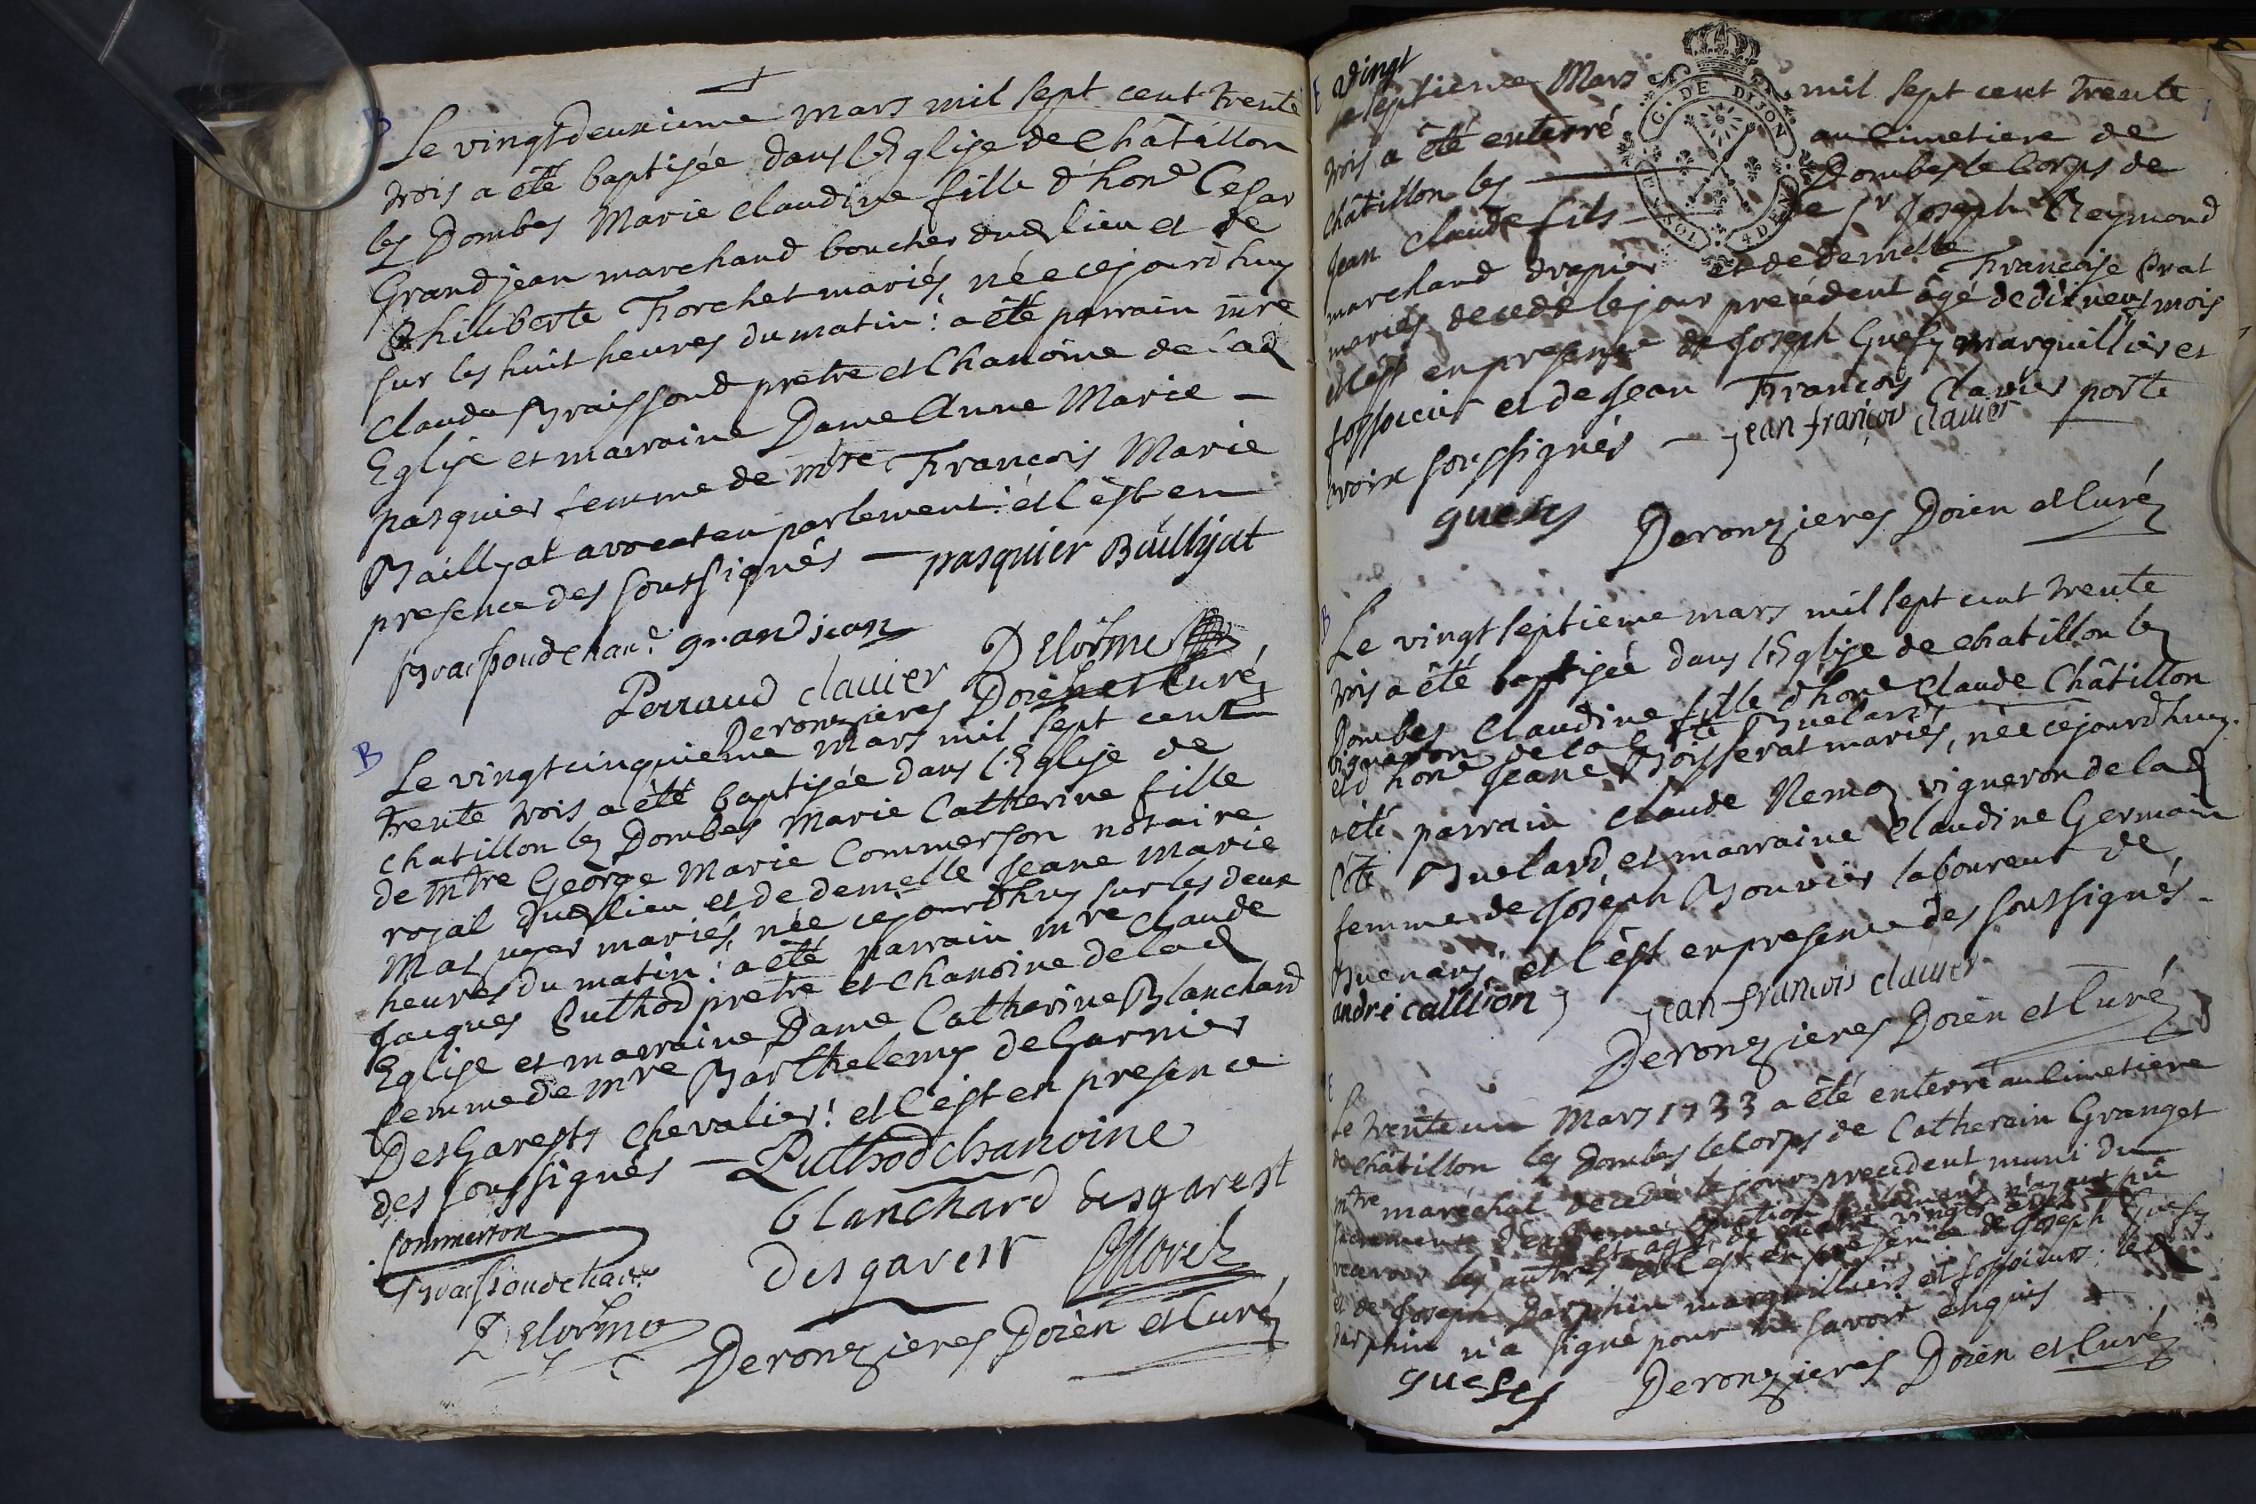 B
Le vingtdeuxieme mars mil sept cent trente
trois a été baptisée dans l'Eglise de Châtillon
les Dombes Marie claudine fille d'hone Cesar
Grandjean marchand boucher dud lieu et de
Philiberte Forchet mariés, née cejourd'huy
sur les huit heures du matin: a été parrain mre
Claude Braissoud pretre et Chanoine de lad
Eglise et marraine Dame Anne Marie –
pasquier femme de mtre François Marie
Baillyat avocat en parlement: et c'est en
presence des soussignés — pasquier Baillyat
Braissoud chane grandjean
Perraud clavier Delorme
Deronzieres Doien et Curé
B
Le vingtcinquieme mars mil sept cent
trente trois a été baptisée dans l'Eglise de
chatillon les Dombes Marie Catherine fille
de mtre George Marie Commerson notaire
royal dud lieu et de demelle Jeane Marie
mariés, née cejourd'huy sur les deux
heures du matin: a été parrain mre Claude
Jacques Puthod pretre et chanoine de lad
Eglise et marraine Dame Catherine Blanchard
femme de mre Barthelemy de Garnier
DesGarests chevalier: et c'est en presence
des soussignés — Puthod chanoine
blanchard desgarest
Commerson
Braissoud chane
desgarest Morel
Delorme
Deronzieres Doien et Curé
E
vingt
Le septieme Mars mil sept cent trente
trois a été enterré au Cimetiere de
Châtillon les — Dombes le Corps de
Jean Claude fils — de Sr Joseph Reymond
marchand drapier et de demelle Françoise Prat
mariés decedé le jour precédent âgé de dix neuf mois
et c'est en presence de Joseph Guesy marguillier et
fossoieur et de Jean François Clavier porte
croix soussignés — jean françois clavier
guesy
Deronzieres Doien et Curé
G. DE DIJON
4 DEN
UN SOL
B
Le vingt septieme mars mil sept cent trente
trois a été baptisée dans l'Eglise de chatillon les
Dombes Claudine fille d'hone Claude Châtillon
vigneron de la Côte Buelard
et d'hone Jeane Boisserat mariés, née cejourd'huy.
a été parrain Claude Remon vigneron de lad
Côte Buelard, et marraine Claudine Germain
femme de Joseph Bouvier laboureur de
Buenans: et c'est en presence des soussignés –
andré caltion jean françois clavier
Deronzieres Doien et Curé
E
Le trente un Mars 1733 a été enterré au Cimetiere
de châtillon les Dombes le Corps de Catherin Granget
mtre maréchal decedé le jour precedent muni du
sacrement d'extreme onction seulement n'ayant pû
recevoir les autres et agé de quatre vingts
et c'est en presence de Joseph Guesy
et de Joseph Darphin marguilliers et fossoieurs: led
darphin n'a signé pour ne savoir enquis
guesy
Deronzieres Doien et Curé